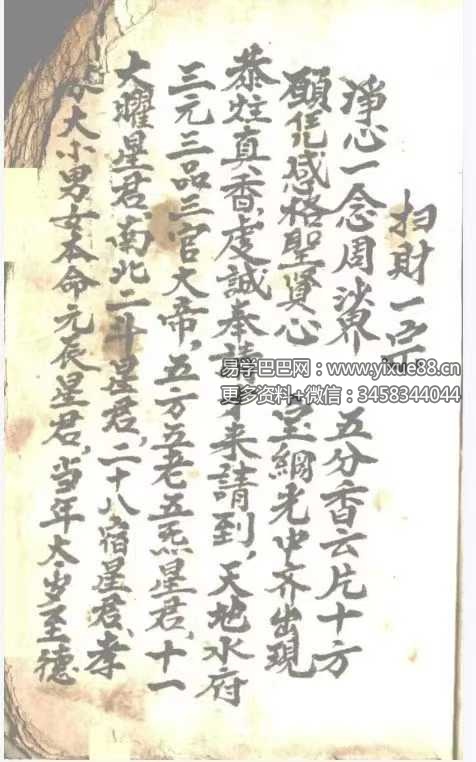 扫財一宗
淨心一念周沙界 五分香云片十方
願凭感格聖賢心 宝網光中齐出現
恭炷真香,虔誠奉請,才来請到,天地水府
三元三品三官大帝,五方五老五炁星君,十一
大曜星君,南北二斗星君,二十八宿星君,孝
大小男女本命元辰星君,当年太岁至德
易学巴巴网:www.yixue88.cn
更多资料+微信:3458344044